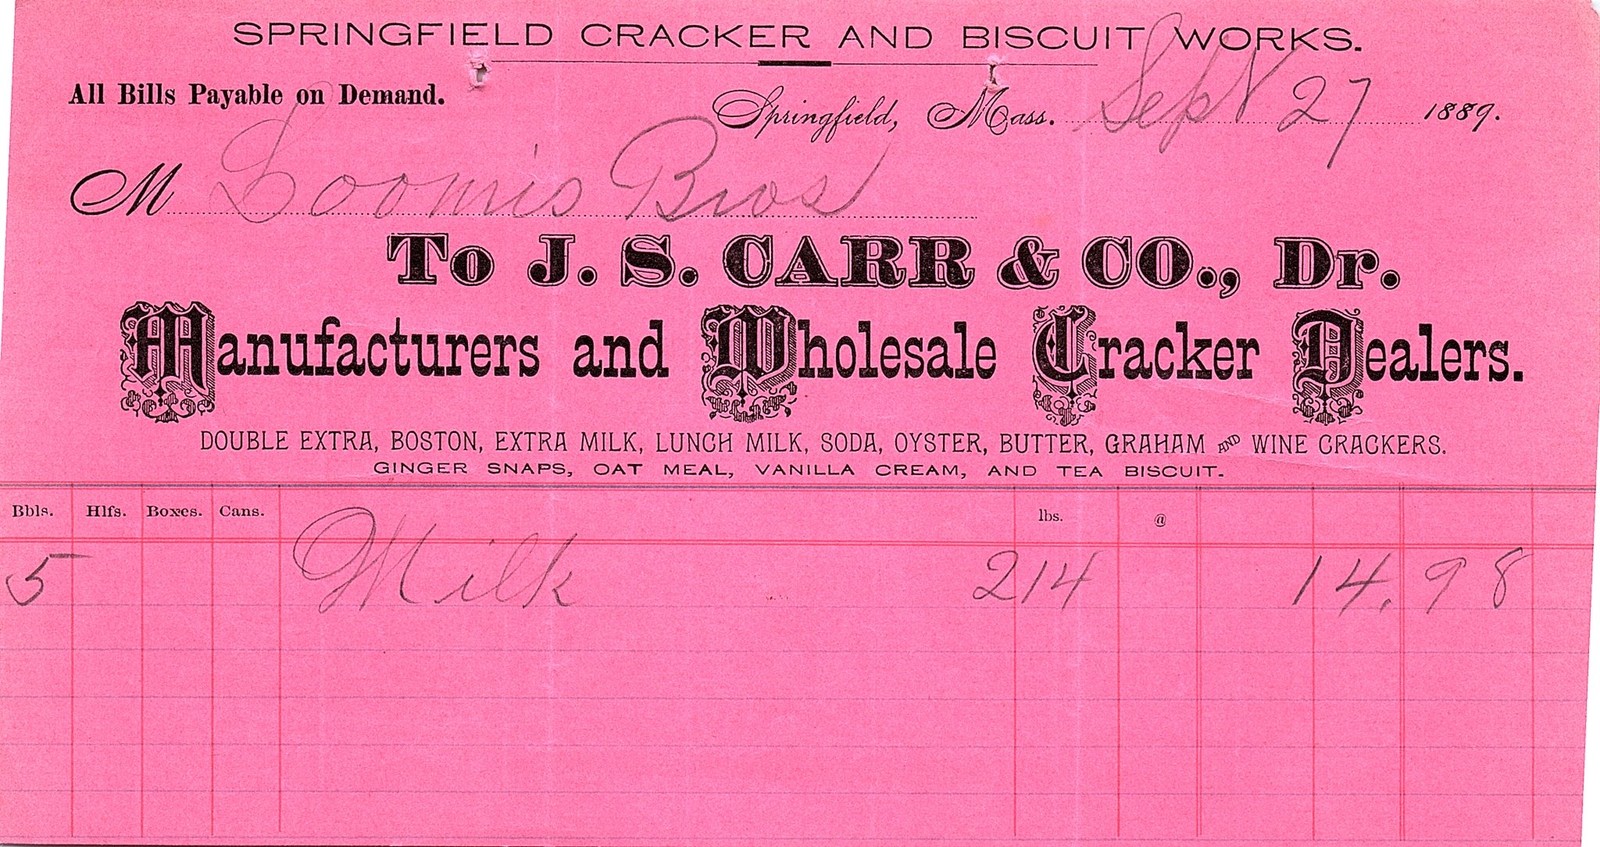 SPRINGFIELD CRACKER AND BISCUIT WORKS.
All Bills Payable on Demand.
Springfield, Mass. Sept 27 1889.
M Loomis Bros
To J. S. CARR & CO., Dr.
Manufacturers and Wholesale Cracker Dealers.
DOUBLE EXTRA, BOSTON, EXTRA MILK, LUNCH MILK, SODA, OYSTER, BUTTER, GRAHAM AND WINE CRACKERS.
GINGER SNAPS, OAT MEAL, VANILLA CREAM, AND TEA BISCUIT.
Bbls. Hlfs. Boxes. Cans. lbs. @
5 Milk 214 14.98